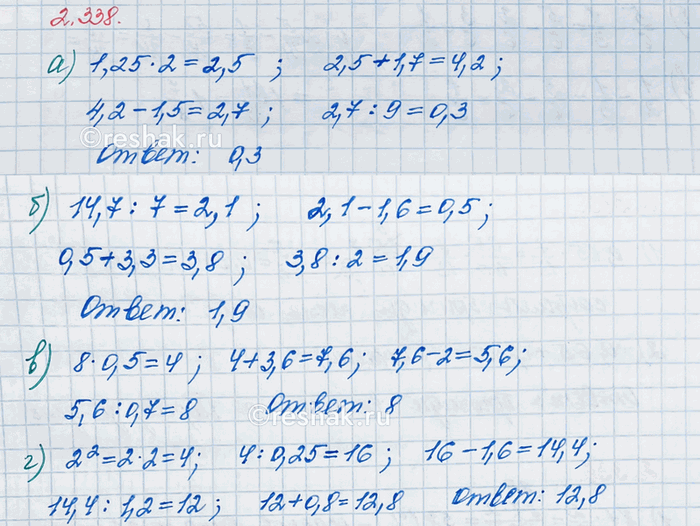 2.338.
а) 1,25·2=2,5 ; 2,5+1,7=4,2;
4,2-1,5=2,7 ; 2,7:9=0,3
©reshak.ru
Ответ: 0,3
б) 14,7:7=2,1 ; 2,1-1,6=0,5;
0,5+3,3=3,8 ; 3,8:2=1,9
Ответ: 1,9
в) 8·0,5=4 ; 4+3,6=7,6; 7,6-2=5,6;
5,6:0,7=8 Ответ: 8
©reshak.ru
г) 2²=2·2=4; 4:0,25=16 ; 16-1,6=14,4;
14,4:1,2=12 ; 12+0,8=12,8 Ответ: 12,8